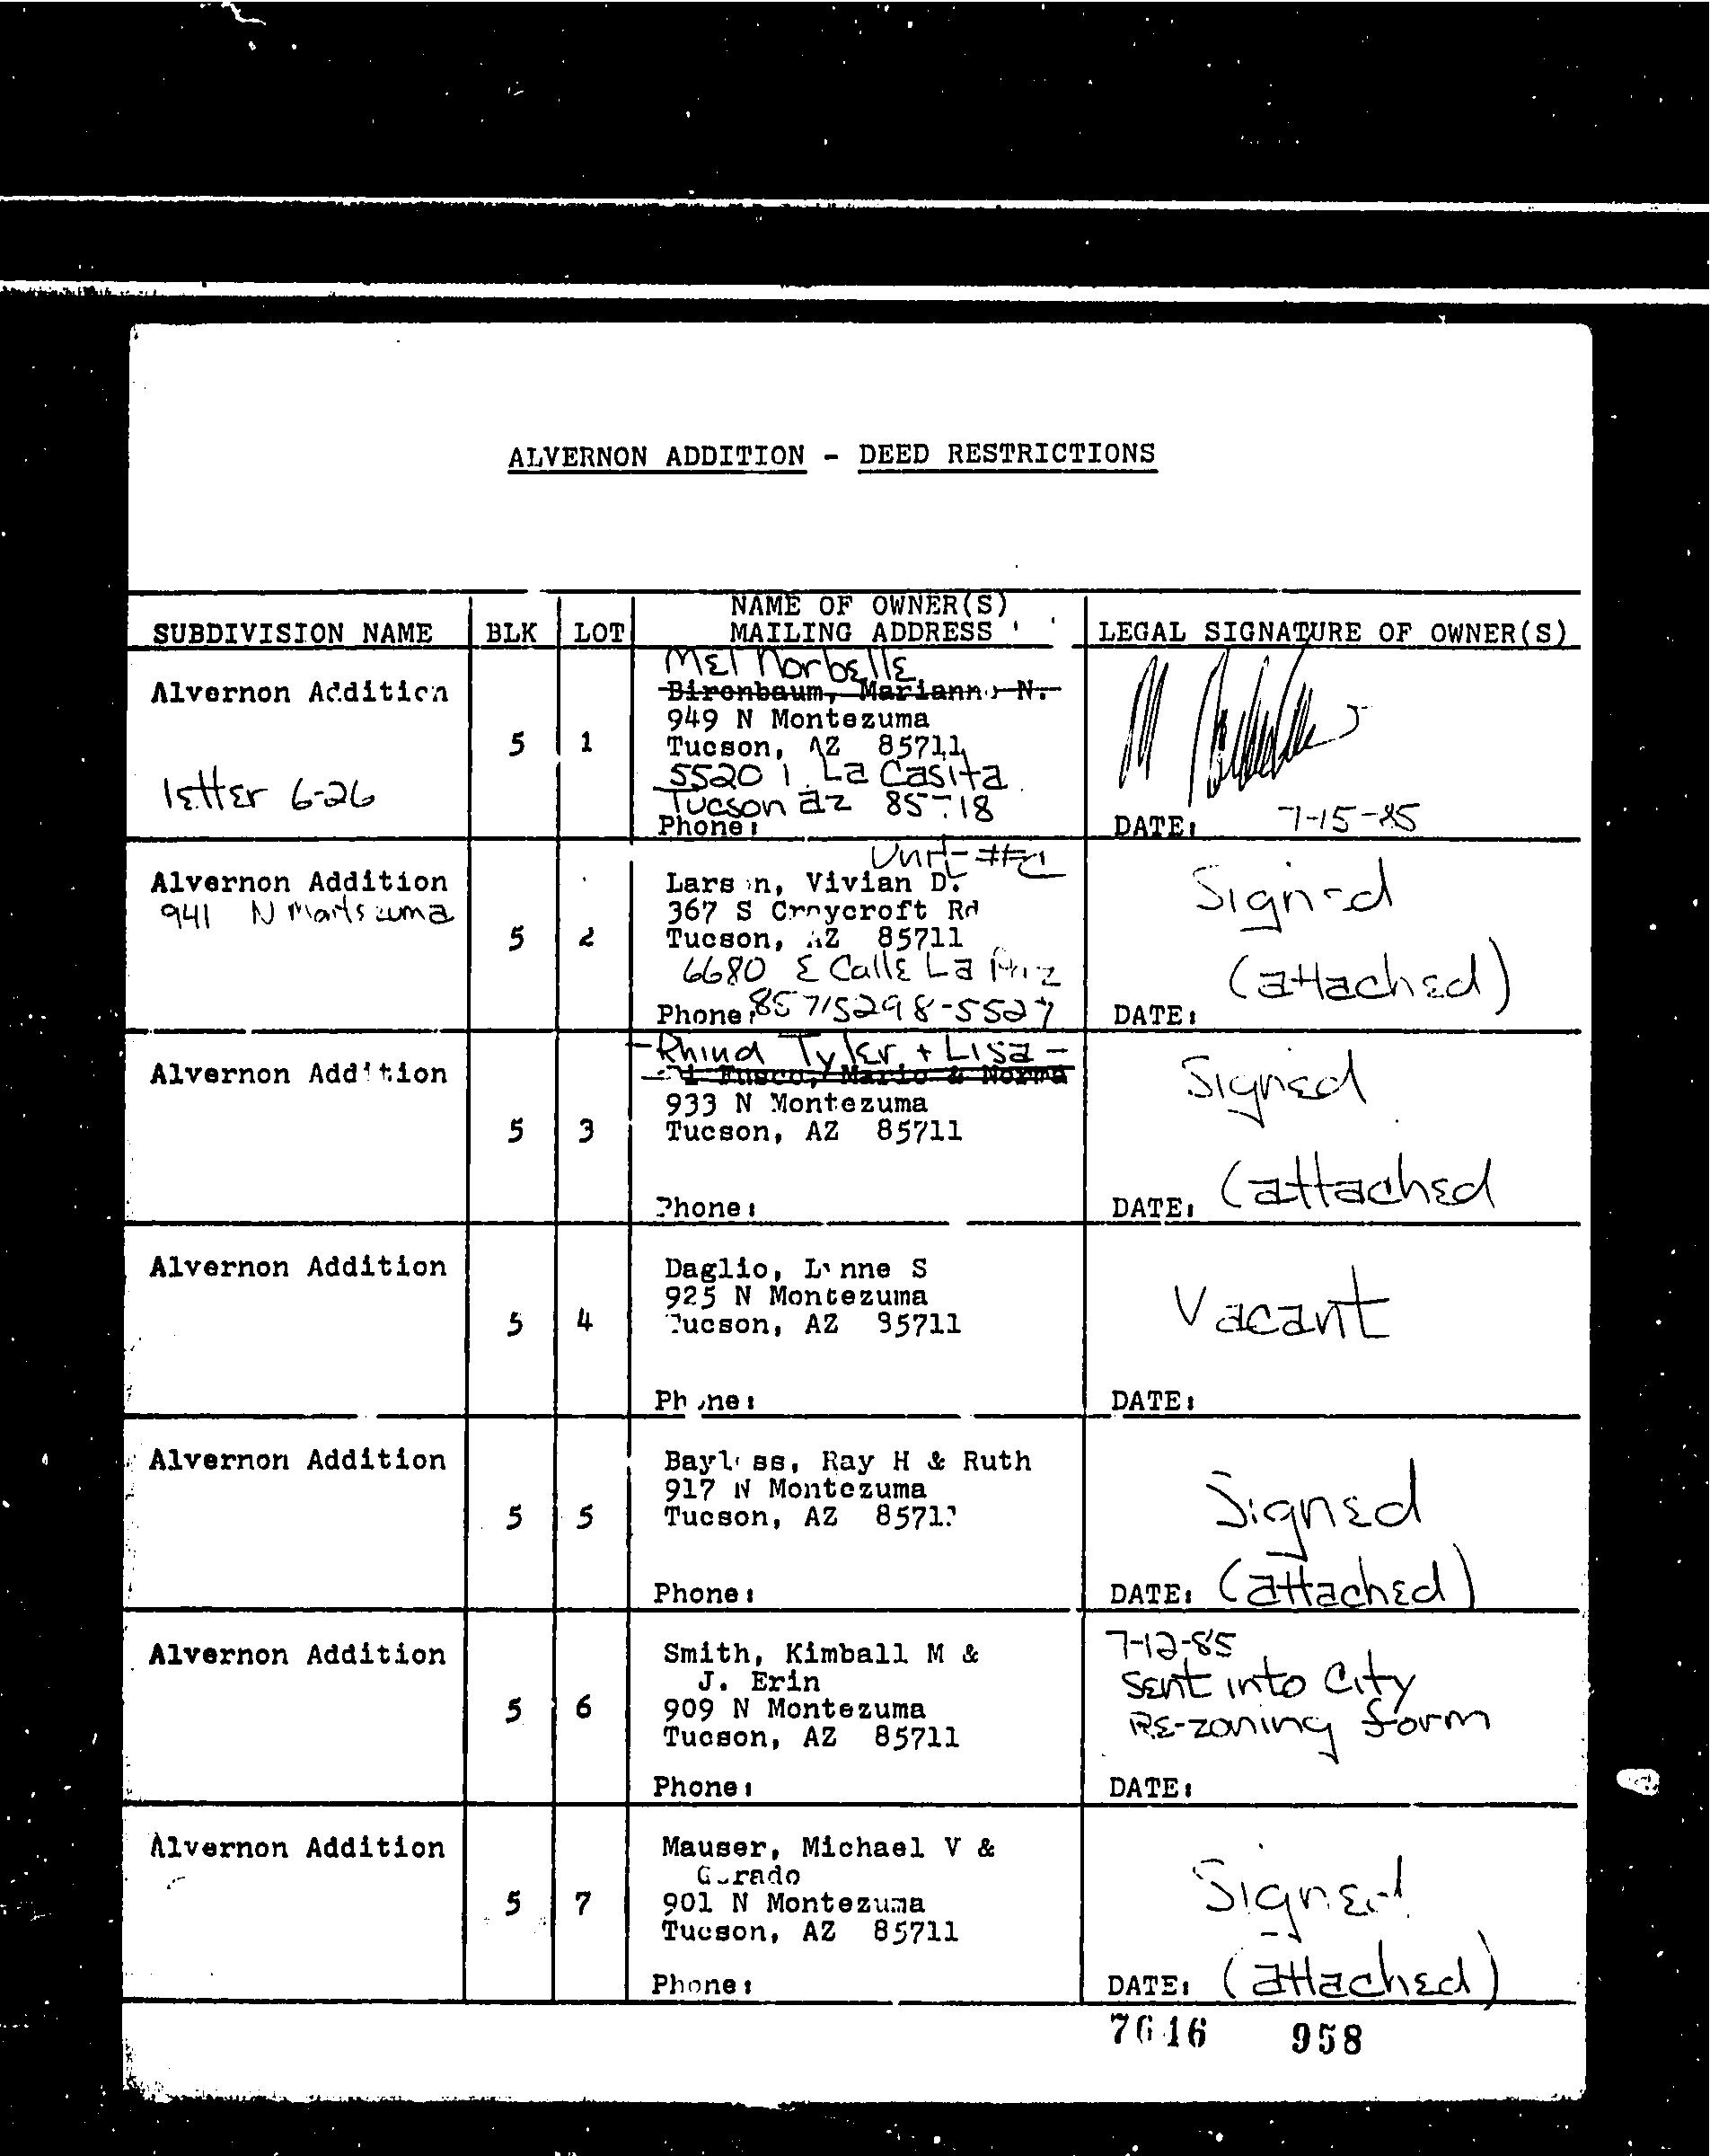 ALVERNON ADDITION - DEED RESTRICTIONS
SUBDIVISION NAME BLK LOT NAME OF OWNER(S) MAILING ADDRESS LEGAL SIGNATURE OF OWNER(S)
Mel Norbelle
Alvernon Addition
949 N Montezuma
5 1 Tucson, AZ 85711
5520 La Casita
letter 6-26
Tucson az 85718
Phone: DATE: 7-15-85
Unit
Alvernon Addition Larson, Vivian D. Signed
941 N Montezuma 367 S Craycroft Rd
5 2 Tucson, AZ 85711
6680 E Calle La Paz (attached)
Phone: 85715 298-5527 DATE:
Rhind Tyler + Lisa
Alvernon Addition Fusco, Mario & Norma Signed
933 N Montezuma
5 3 Tucson, AZ 85711
Phone: DATE: (attached
Alvernon Addition Daglio, Lynne S
925 N Montezuma Vacant
5 4 Tucson, AZ 85711
Phone: DATE:
Alvernon Addition Bayless, Ray H & Ruth
917 N Montezuma Signed
5 5 Tucson, AZ
Phone: DATE: (attached)
Alvernon Addition Smith, Kimball M & 7-12-85
J. Erin sent into City
5 6 909 N Montezuma Re-zoning form
Tucson, AZ 85711
Phone: DATE:
Alvernon Addition Mauser, Michael V &
5 7 901 N Montezuma Signed
Tucson, AZ 85711
Phone: DATE: (attached)
958